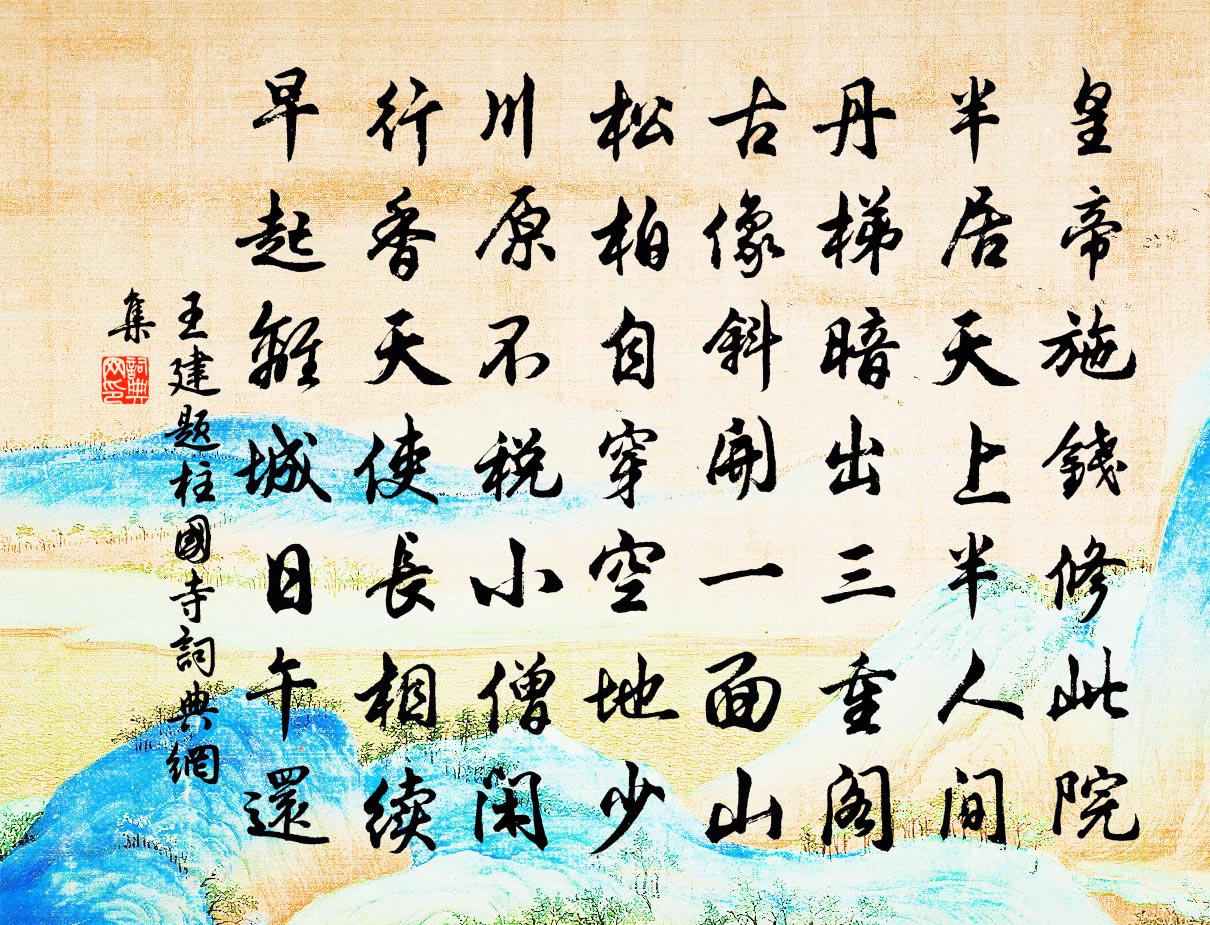 皇帝施錢修此院
半居天上半人间
丹梯暗出三重阁
古像斜開一面山
松柏自穿空地少
川原不税小僧闲
行香天使長相续
早起離城日午還
王建題柱國寺詞典網
集
詞典網印